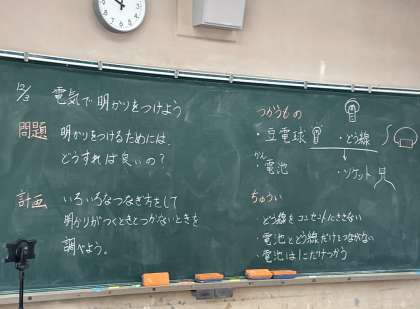 12/3 電気で明かりをつけよう
問題 明かりをつけるためには、
どうすれば良いの？
計画 いろいろなつなぎ方をして
明かりがつくときとつかないときを
調べよう。
つかうもの
・豆電球 ・どう線
かん
・電池 ・ソケット
ちゅうい
・どう線をコンセントにささない
・電池とどう線だけでつながない
・電池は1こだけつかう